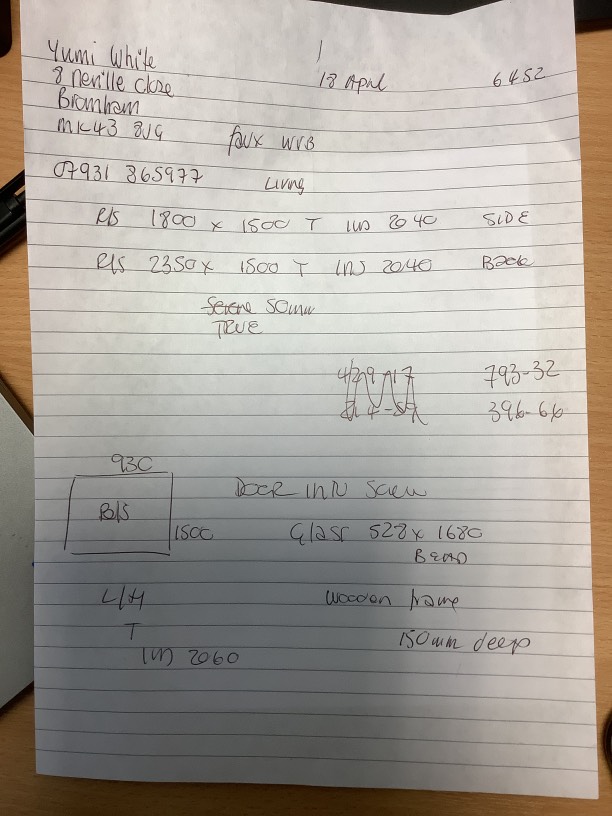 Yumi White
8 neville close
Bromham
MK43 8UG
18 April
6452
faux WVB
07931 865977
Living
R/S 1800 x 1500 T IN 2040 SIDE
R/S 2350 x 1500 T INS 2040 Back
Serene 50mm
TRUE
793-32
396-66
930
B/S
1500
DOOR INN Screw
Glass 528 x 1680
BEAD
L/H
wooden frame
T
150mm deep
2060